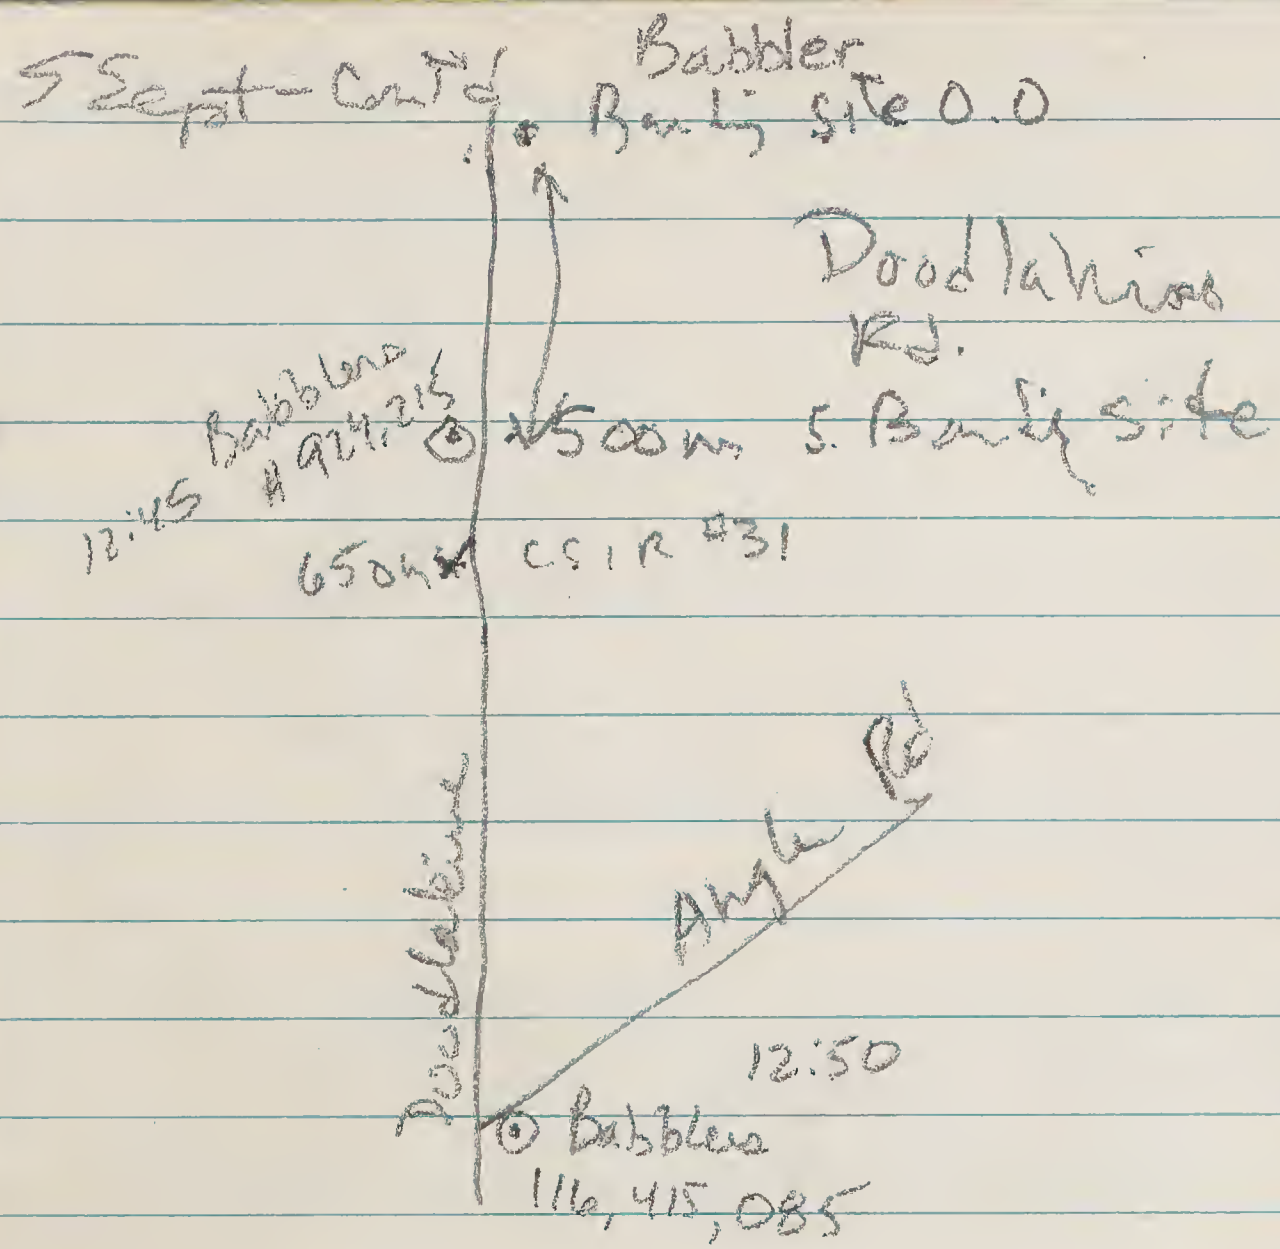 5 Sept - Cont'd
Babbler
Banding Site 0.0
Doodlakine
Rd.
Babblers
# 924,215
12:45
500m S. Banding Site
650m CSIR #31
Doodlakine
Angle Rd
12:50
Babblers
116, 415, 085